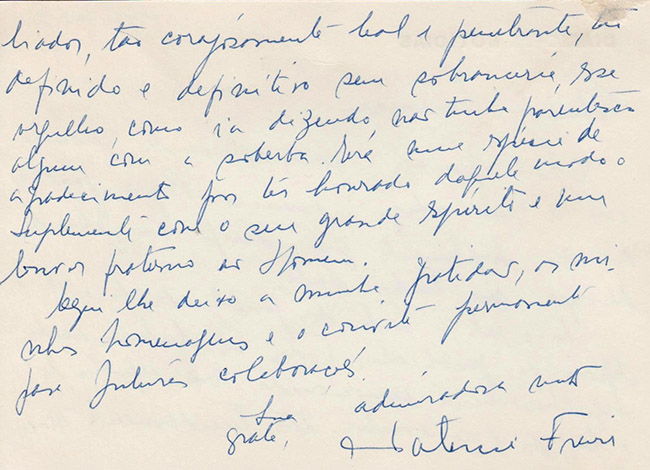 liador, tão corajosamente leal e penetrante, tão
definido e definitivo sem sobranceria, esse
orgulho, como ia dizendo, não tinha parentesco
algum com a soberba. Era uma espécie de
agradecimento por ter honrado daquele modo o
Suplemento com o seu grande espírito e um
fraterno ao Homem.
Aqui lhe deixo a minha gratidão, as mi-
nhas homenagens e o convite permanente
para futuras colaborações.
Sua admiradora muito
grata,
Natércia Freire